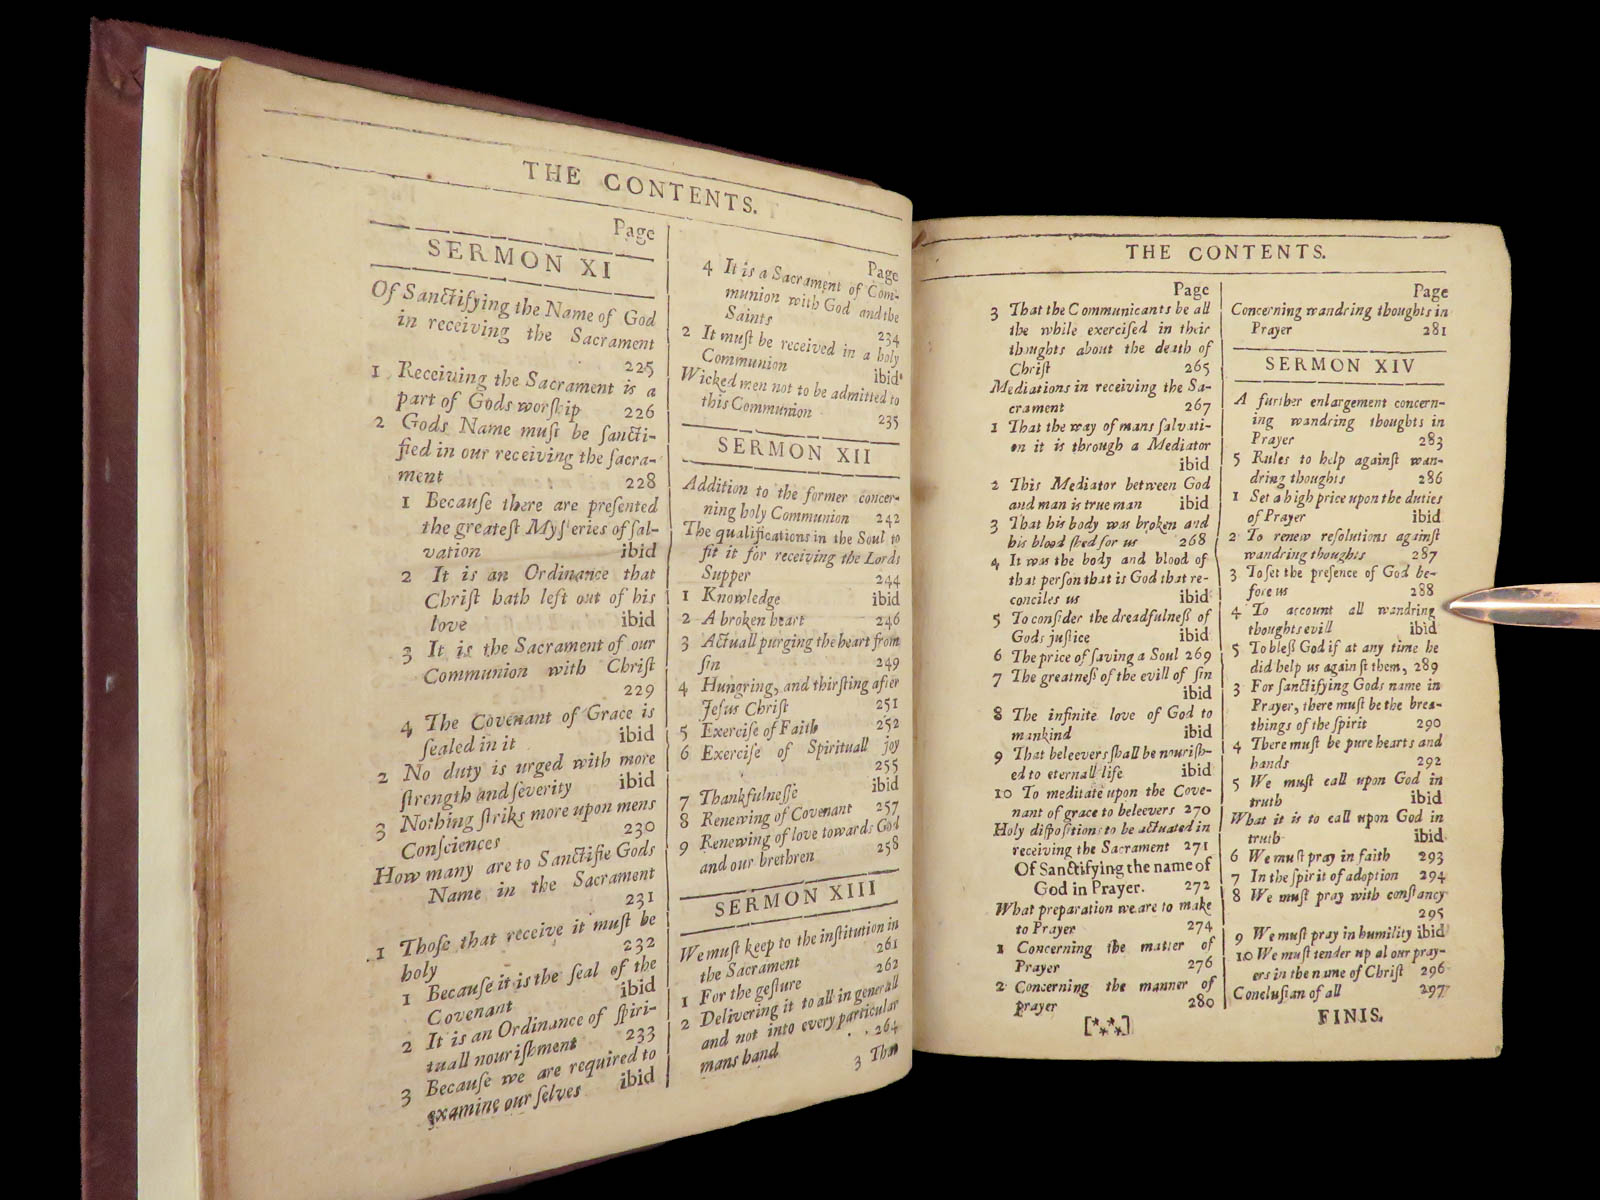 THE CONTENTS.
Page
SERMON XI
Of Sanctifying the Name of God
in receiving the Sacrament
225
1 Receiving the Sacrament is a
part of Gods worſhip 226
2 Gods Name muſt be ſancti-
fied in our receiving the ſacra-
ment 228
1 Becauſe there are preſented
the greateſt Myſteries of ſal-
vation ibid
2 It is an Ordinance that
Chriſt hath left out of his
love ibid
3 It is the Sacrament of our
Communion with Chriſt
229
4 The Covenant of Grace is
ſealed in it ibid
2 No duty is urged with more
ſtrength and ſeverity ibid
3 Nothing ſtriks more upon mens
Conſciences 230
How many are to Sanctifie Gods
Name in the Sacrament
231
1 Thoſe that receive it muſt be
holy 232
1 Becauſe it is the ſeal of the
Covenant ibid
2 It is an Ordinance of ſpiri-
tuall nouriſhment 233
3 Becauſe we are required to
examine our ſelves ibid
Page
4 It is a Sacrament of Com-
munion with God and the
Saints 234
2 It muſt be received in a holy
Communion ibid
Wicked men not to be admitted to
this Communion 235
SERMON XII
Addition to the former concer-
ning holy Communion 242
The qualifications in the Soul to
fit it for receiving the Lords
Supper 244
1 Knowledge ibid
2 A broken heart 246
3 Actuall purging the heart from
ſin 249
4 Hungring, and thirſting after
Jeſus Chriſt 251
5 Exerciſe of Faith 252
6 Exerciſe of Spirituall joy
255
7 Thankfulneſſe ibid
8 Renewing of Covenant 257
9 Renewing of love towards God
and our brethren 258
SERMON XIII
We muſt keep to the inſtitution in
the Sacrament 261
1 For the geſture 262
2 Delivering it to all in generall
and not into every particular
mans hand 264
3 That
THE CONTENTS.
Page
3 That the Communicants be all
the while exerciſed in their
thoughts about the death of
Chriſt 265
Mediations in receiving the Sa-
crament 267
1 That the way of mans ſalvati-
on it is through a Mediator
ibid
2 This Mediator between God
and man is true man ibid
3 That his body was broken and
his blood ſhed for us 268
4 It was the body and blood of
that perſon that is God that re-
conciles us ibid
5 To conſider the dreadfulneſs of
Gods juſtice ibid
6 The price of ſaving a Soul 269
7 The greatneſs of the evill of ſin
ibid
8 The infinite love of God to
mankind ibid
9 That beleevers ſhall be nouriſh-
ed to eternall life ibid
10 To meditate upon the Cove-
nant of grace to beleevers 270
Holy diſpoſitions to be actuated in
receiving the Sacrament 271
Of Sanctifying the name of
God in Prayer. 272
What preparation we are to make
to Prayer 274
1 Concerning the matter of
Prayer 276
2 Concerning the manner of
prayer 280
[***]
Page
Concerning wandring thoughts in
Prayer 281
SERMON XIV
A further enlargement concern-
ing wandring thoughts in
Prayer 283
5 Rules to help againſt wan-
dring thoughts 286
1 Set a high price upon the duties
of Prayer ibid
2 To renew reſolutions againſt
wandring thoughts 287
3 To ſet the preſence of God be-
fore us 288
4 To account all wandring
thoughts evill ibid
5 To bleſs God if at any time he
did help us againſt them, 289
3 For ſanctifying Gods name in
Prayer, there muſt be the brea-
things of the ſpirit 290
4 There muſt be pure hearts and
hands 292
5 We muſt call upon God in
truth ibid
What it is to call upon God in
truth ibid
6 We muſt pray in faith 293
7 In the ſpirit of adoption 294
8 We muſt pray with conſtancy
295
9 We muſt pray in humility ibid
10 We muſt tender up al our pray-
ers in the name of Chriſt 296
Concluſian of all 297
FINIS.